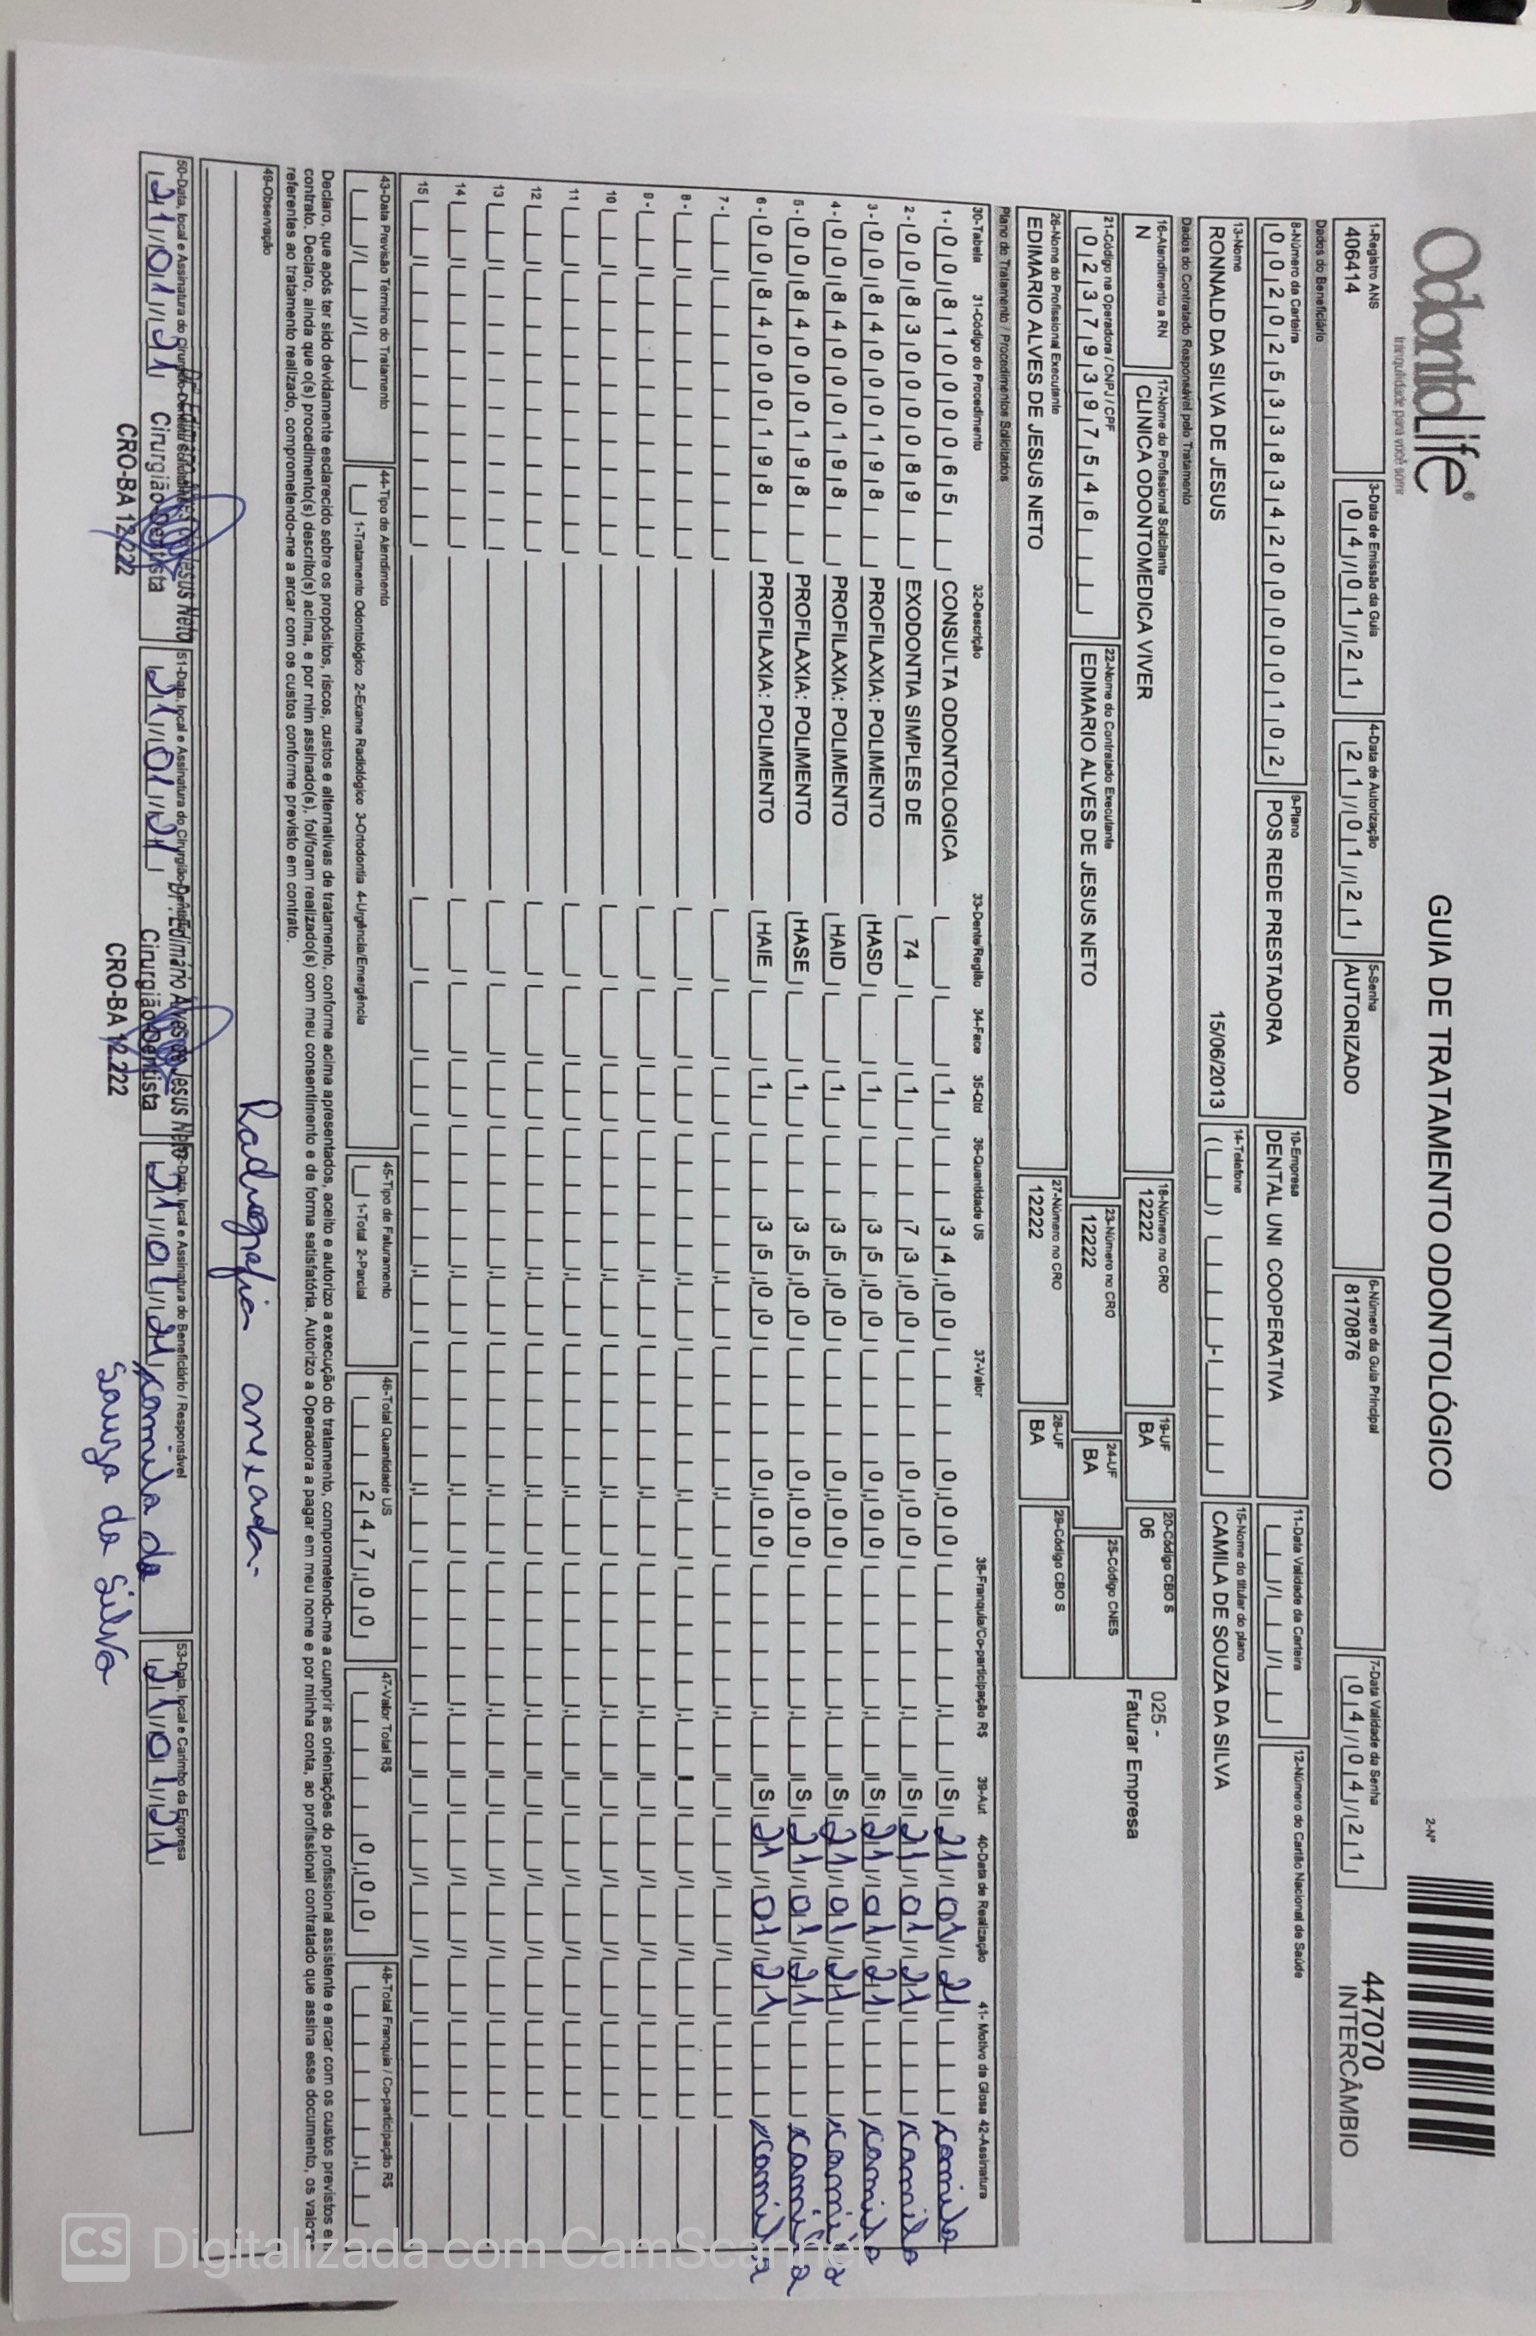 OdontoLife®
tranquilidade para você sorrir
GUIA DE TRATAMENTO ODONTOLÓGICO
2-Nº
447070
INTERCÂMBIO
1-Registro ANS 3-Data de Emissão da Guia 4-Data de Autorização 5-Senha 6-Número da Guia Principal 7-Data Validade da Senha
406414 04/01/21 21/01/21 AUTORIZADO 8170876 04/04/21
Dados do Beneficiário
8-Número da Carteira 9-Plano 10-Empresa 11-Data Validade da Carteira 12-Número do Cartão Nacional de Saúde
00202533834200000102 POS REDE PRESTADORA DENTAL UNI COOPERATIVA
13-Nome 14-Telefone 15-Nome do titular do plano
RONNALD DA SILVA DE JESUS 15/06/2013 CAMILA DE SOUZA DA SILVA
Dados do Contratado Responsável pelo Tratamento
16-Atendimento a RN 17-Nome do Profissional Solicitante 18-Número no CRO 19-UF 20-Código CBO S
N CLINICA ODONTOMEDICA VIVER 12222 BA 06
025 -
Faturar Empresa
21-Código na Operadora / CNPJ / CPF 22-Nome do Contratado Executante 23-Número no CRO 24-UF 25-Código CNES
02379397546 EDIMARIO ALVES DE JESUS NETO 12222 BA
26-Nome do Profissional Executante 27-Número no CRO 28-UF 29-Código CBO S
EDIMARIO ALVES DE JESUS NETO 12222 BA
Plano de Tratamento / Procedimentos Solicitados
30-Tabela 31-Código do Procedimento 32-Descrição 33-Dente/Região 34-Face 35-Qtd 36-Quantidade US 37-Valor 38-Franquia/Co-participação R$ 39-Aut 40-Data de Realização 41- Motivo da Glosa 42-Assinatura
1- 00 81000065 CONSULTA ODONTOLOGICA 1 34,00 0,00 S 21/01/21 Camila
2- 00 83000089 EXODONTIA SIMPLES DE 74 1 73,00 0,00 S 21/01/21 Camila
3- 00 84000198 PROFILAXIA: POLIMENTO HASD 1 35,00 0,00 S 21/01/21 Camila
4- 00 84000198 PROFILAXIA: POLIMENTO HAID 1 35,00 0,00 S 21/01/21 Camila
5- 00 84000198 PROFILAXIA: POLIMENTO HASE 1 35,00 0,00 S 21/01/21 Camila
6- 00 84000198 PROFILAXIA: POLIMENTO HAIE 1 35,00 0,00 S 21/01/21 Camila
7-
8-
9-
10
11
12
13
14
15
43-Data Previsão Término do Tratamento 44-Tipo de Atendimento 45-Tipo de Faturamento 46-Total Quantidade US 47-Valor Total R$ 48-Total Franquia / Co-participação R$
1-Tratamento Odontológico 2-Exame Radiológico 3-Ortodontia 4-Urgência/Emergência 1-Total 2-Parcial 247,00 0,00
Declaro, que após ter sido devidamente esclarecido sobre os propósitos, riscos, custos e alternativas de tratamento, conforme acima apresentados, aceito e autorizo a execução do tratamento, comprometendo-me a cumprir as orientações do profissional assistente e arcar com os custos previstos e
contrato. Declaro, ainda que o(s) procedimento(s) descrito(s) acima, e por mim assinado(s), foi/foram realizado(s) com meu consentimento e de forma satisfatória. Autorizo a Operadora a pagar em meu nome e por minha conta, ao profissional contratado que assina esse documento, os valores
referentes ao tratamento realizado, comprometendo-me a arcar com os custos conforme previsto em contrato.
49-Observação
Radiografia anexada.
50-Data, local e Assinatura do Cirurgião-Dentista 51-Data, local e Assinatura do Cirurgião-Dentista 52-Data, local e Assinatura do Beneficiário / Responsável 53-Data, local e Carimbo da Empresa
21/01/21 21/01/21 21/01/21 Camila de 21/01/21
Souza da Silva
Dr. Edimário Alves de Jesus Neto
Cirurgião-Dentista
CRO-BA 12.222
Dr. Edimário Alves de Jesus Neto
Cirurgião-Dentista
CRO-BA 12.222
CS Digitalizada com CamScanner